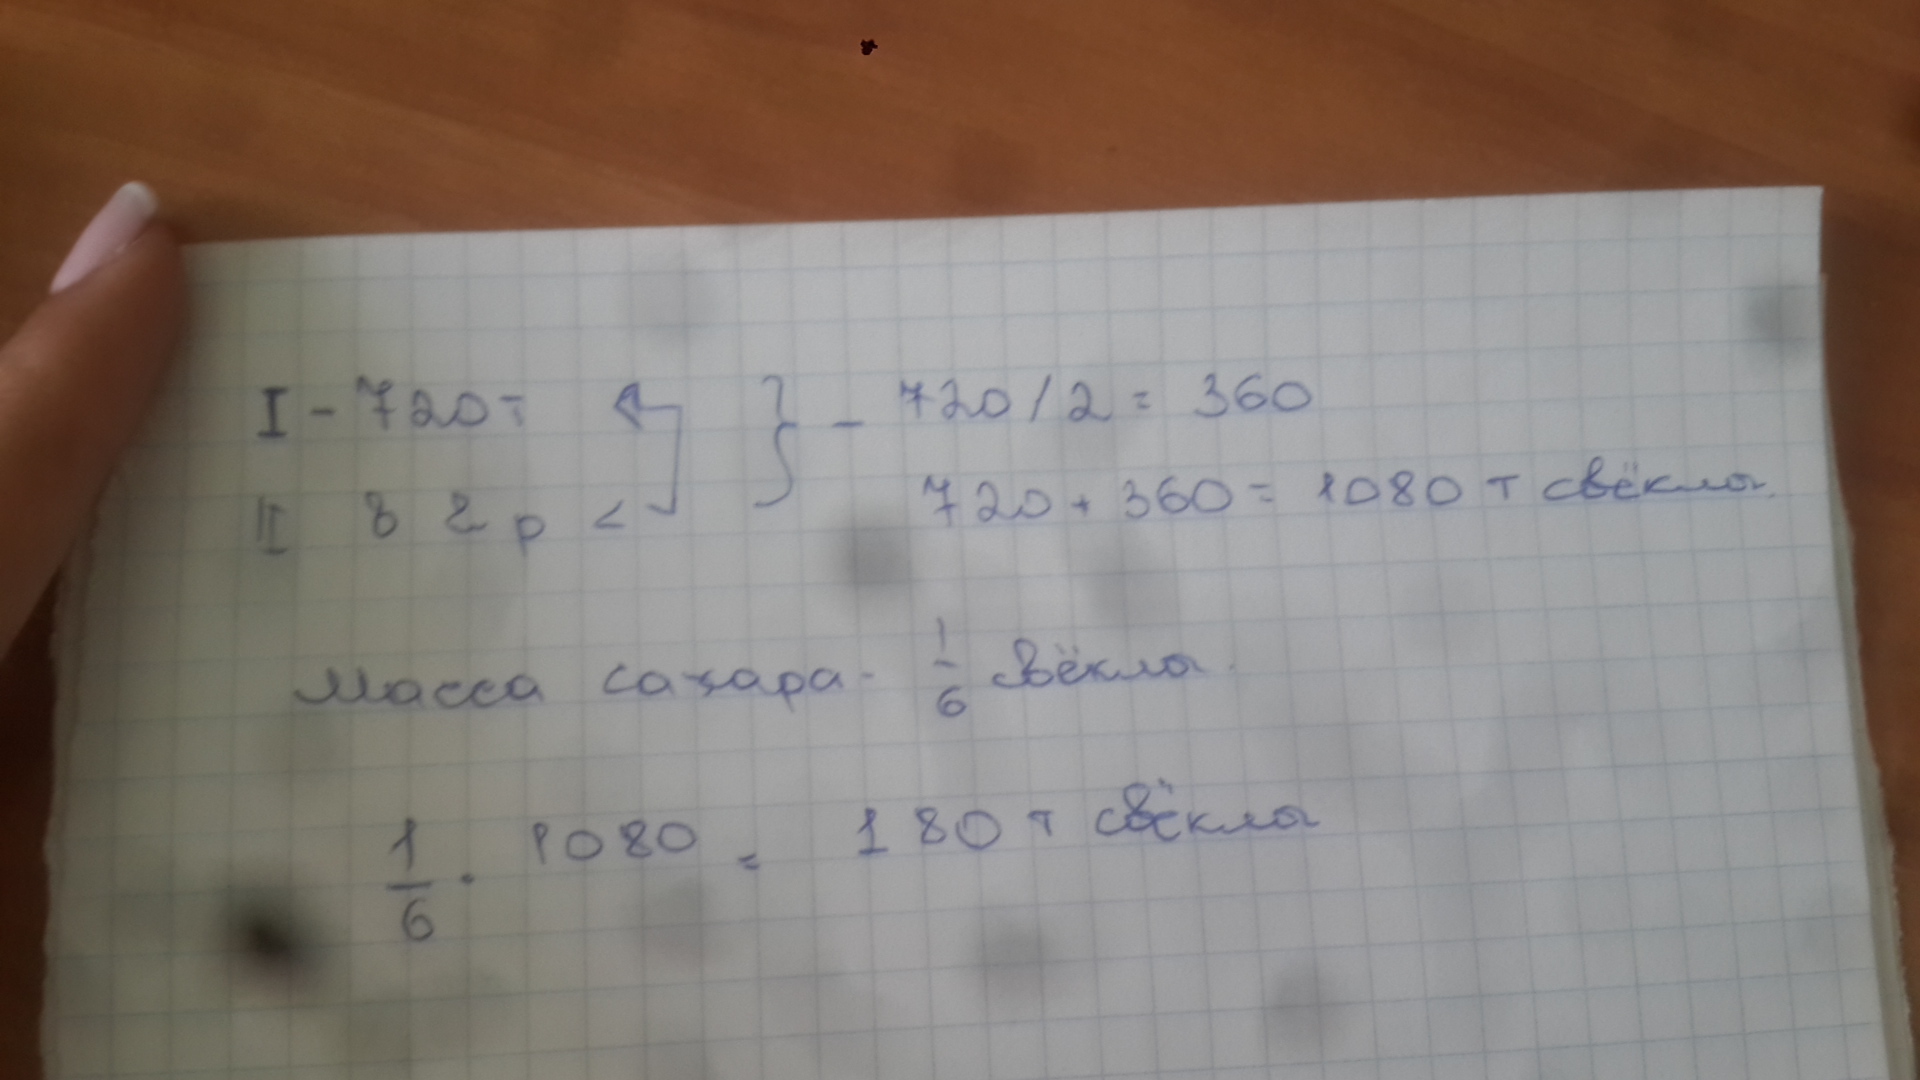 I - 720т } - 720/2 = 360
II в 2 р < 720 + 360 = 1080 т свёклы.
Масса сахара - 1/6 свёклы.
1/6 · 1080 = 180 т свёклы